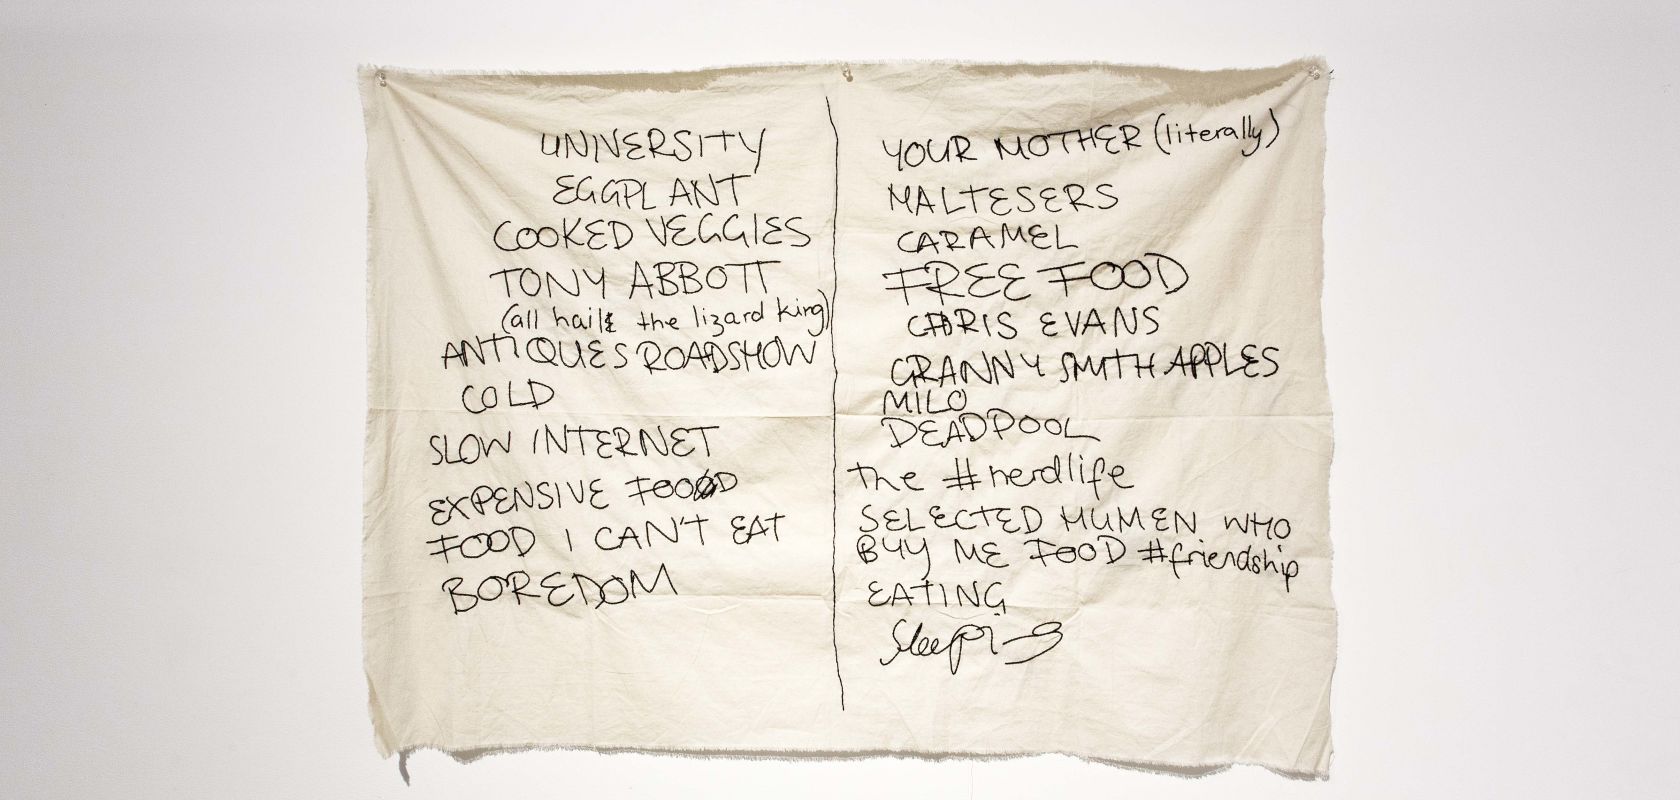 UNIVERSITY
EGGPLANT
COOKED VEGGIES
TONY ABBOTT
(all hail the lizard king)
ANTIQUES ROADSHOW
COLD
SLOW INTERNET
EXPENSIVE FOOD
FOOD I CAN'T EAT
BOREDOM
YOUR MOTHER (literally)
MALTESERS
CARAMEL
FREE FOOD
CHRIS EVANS
GRANNY SMITH APPLES
MILO
DEADPOOL
the #nerdlife
SELECTED HUMEN WHO
BUY ME FOOD #friendship
EATING
Sleeping